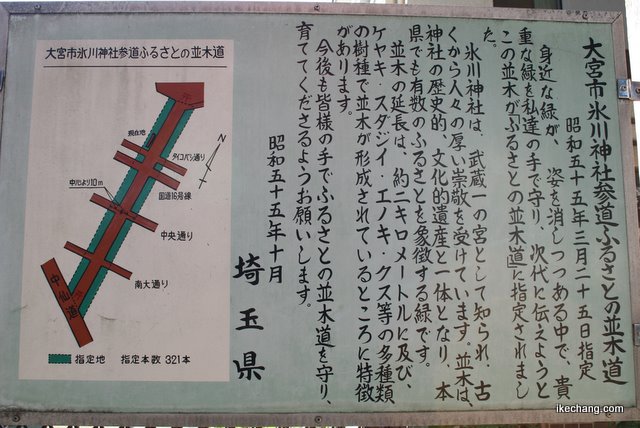 大宮市氷川神社参道ふるさとの並木道
昭和五十五年三月二十五日指定
身近な緑が、姿を消しつつある中で、貴
重な緑を私達の手で守り、次代に伝えようと
この並木が「ふるさとの並木道」に指定されまし
た。
氷川神社は、武蔵一の宮として知られ、古
くから人々の厚い崇敬を受けています。並木は、
神社の歴史的、文化的遺産と一体となり、本
県でも有数のふるさとを象徴する緑です。
並木の延長は、約二キロメートルに及び、
ケヤキ・スダジイ・エノキ・クス等の多種類
の樹種で並木が形成されているところに特徴
があります。
今後も皆様の手でふるさとの並木道を守り、
育ててくださるようお願いします。
昭和五十五年十月
埼玉県
大宮市氷川神社参道ふるさとの並木道
現在地
タイコバシ通り
国道16号線
中心より10m
中央通り
南大通り
中仙道
N
指定地 指定本数 321本
ikechang.com